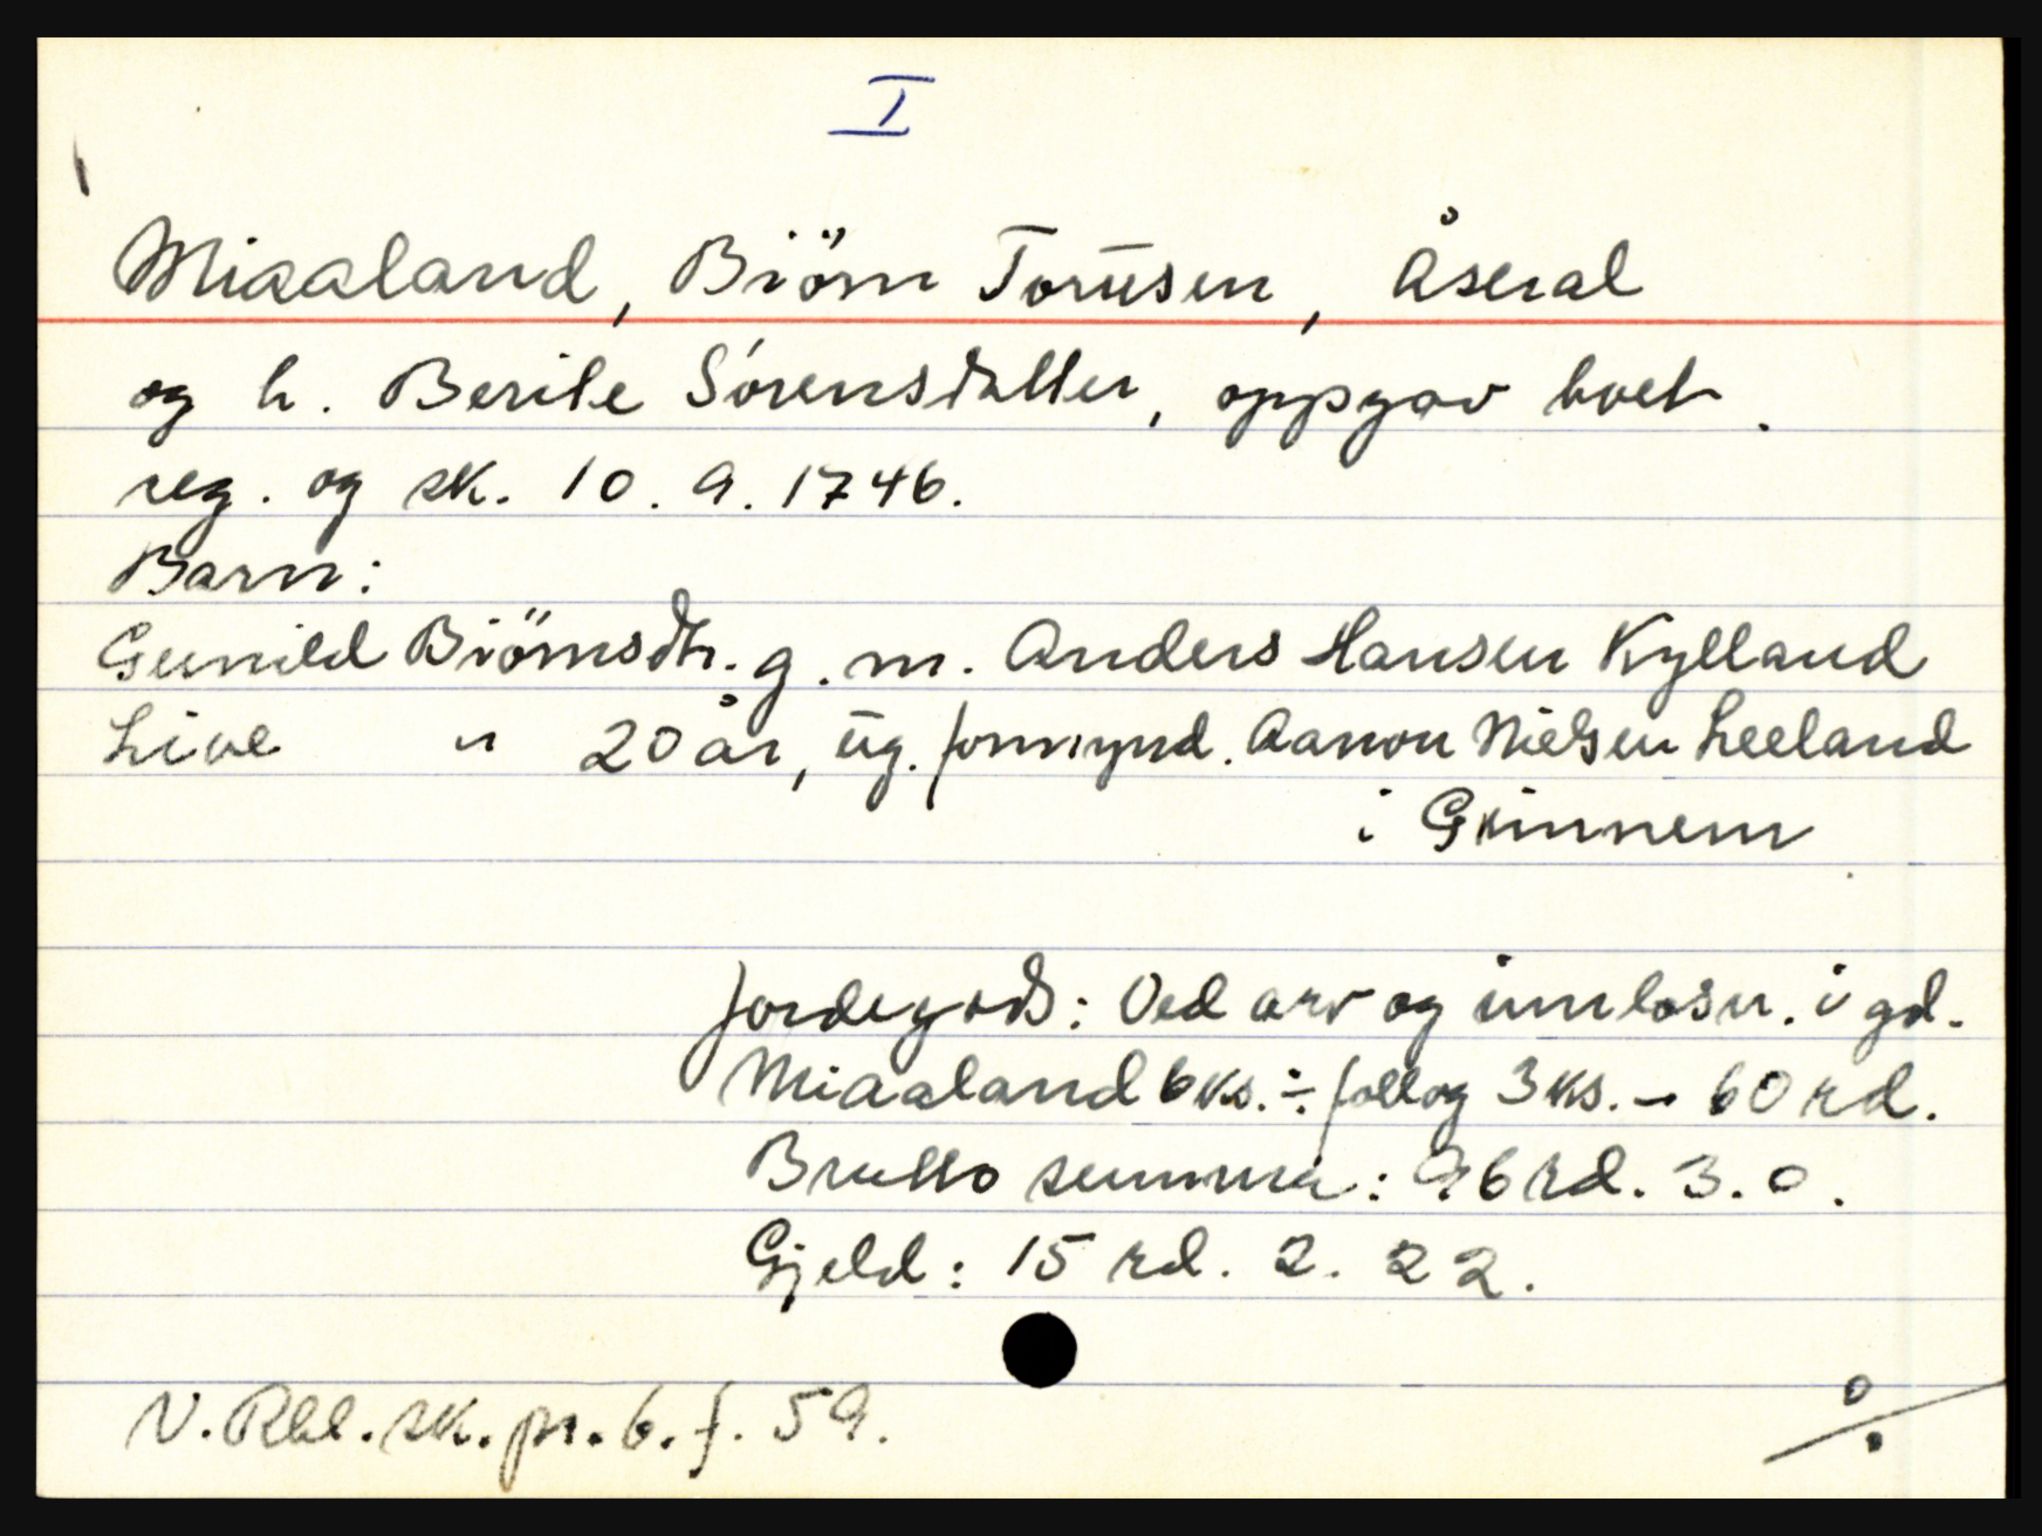 I
Miaaland, Biörn Torūsen, Åseral
og h. Berite Sörensdatter, oppgav boet.
reg. og sk. 10. 9. 1746.
Barn:
Gunild Biörnsdtr. g. m. Anders Hansen Kylland
Live " 20 år, ūg. formynd. Aanon Nielsen Leeland
i Grinnem
Jordegods: Ved arv og innløsn. i gd.
Miaaland 6 ks. ÷ føll og 3 ks. - 60 rd.
Brutto summa: 96 rd. 3. 0.
Gjeld: 15 rd. 2. 22.
N. Rbl. sk. pr. 6. f. 59.
%